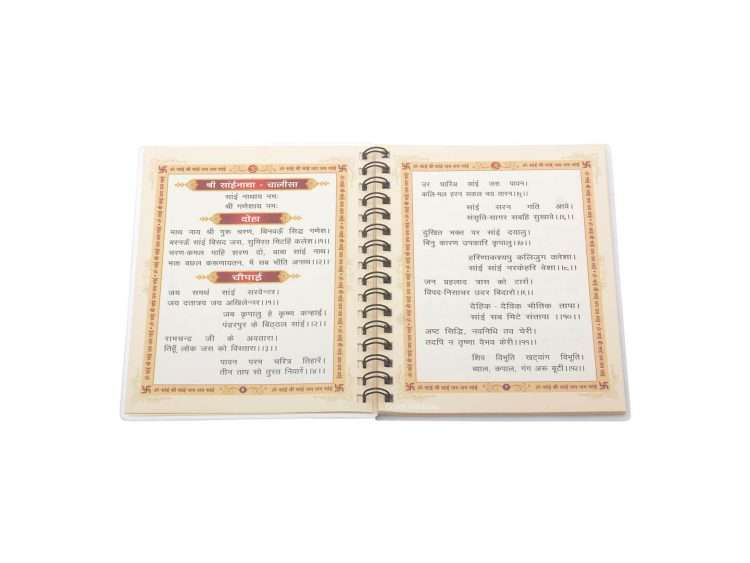 ॐ सांई श्री सांई जय जय सांई ॐ सांई श्री सांई जय जय सांई
श्री सांईनाथा - चालीसा
सांई नाथाय नमः
श्री गणेशाय नमः
दोहा
माथ नाय श्री गुरू चरण, बिनवऊँ सिद्ध गणेश।
बरनऊँ सांई बिसद जस, सुमिरत मिटहिं कलेश।।१।।
चरण-कमल माहि शरण दो, बाबा सांई नाथ।
भक्त बछल करूणायतन, मैं सब भाँति अनाथ।।२।।
चौपाई
जय समर्थ सांई सरवेश्वर।
जय दतात्रय जय अखिलेश्वर।।१।।
जय कृपालु हे कृष्ण कन्हाई।
पंडरपुर के बिट्ठल सांई।।२।।
रामचन्द्र जी के अवतारा।
तिहूँ लोक जस को विस्तारा।।३।।
पावन परम चरित्र तिहारें।
तीन ताप सो तुरत निवारें।।४।।
ॐ सांई श्री सांई जय जय सांई ॐ सांई श्री सांई जय जय सांई
ॐ सांई श्री सांई जय जय सांई ॐ सांई श्री सांई जय जय सांई
उर धारित्र सांई जस पावन।
कलि-मल हरन सकल भय तारन।।५।।
सांई सरन गति आवे।
संसृति-सागर सबहिं सुखावे।।६।।
दुखित भक्त पर सांई दयालु।
बिनु कारण उपकारि कृपालु।।७।।
हरिणाकश्यपु कलिजुग कलेशा।
सांई सांई नरकेहरि वेशा।।८।।
जन प्रहलाद त्रास को टारों।
विपद-निसाचर उदर बिदारो।।९।।
दैहिक - दैविक भौतिक तापा।
सांई सब मिटे संतापा ।।१०।।
अष्ट सिद्धि, नवनिधि तव चेरी।
तदपि न तृष्णा वैभव केरी।।११।।
शिव विभूति खट्वांग विभूति।
व्याल, कपाल, गंग अरू बूटी।।१२।।
ॐ सांई श्री सांई जय जय सांई ॐ सांई श्री सांई जय जय सांई